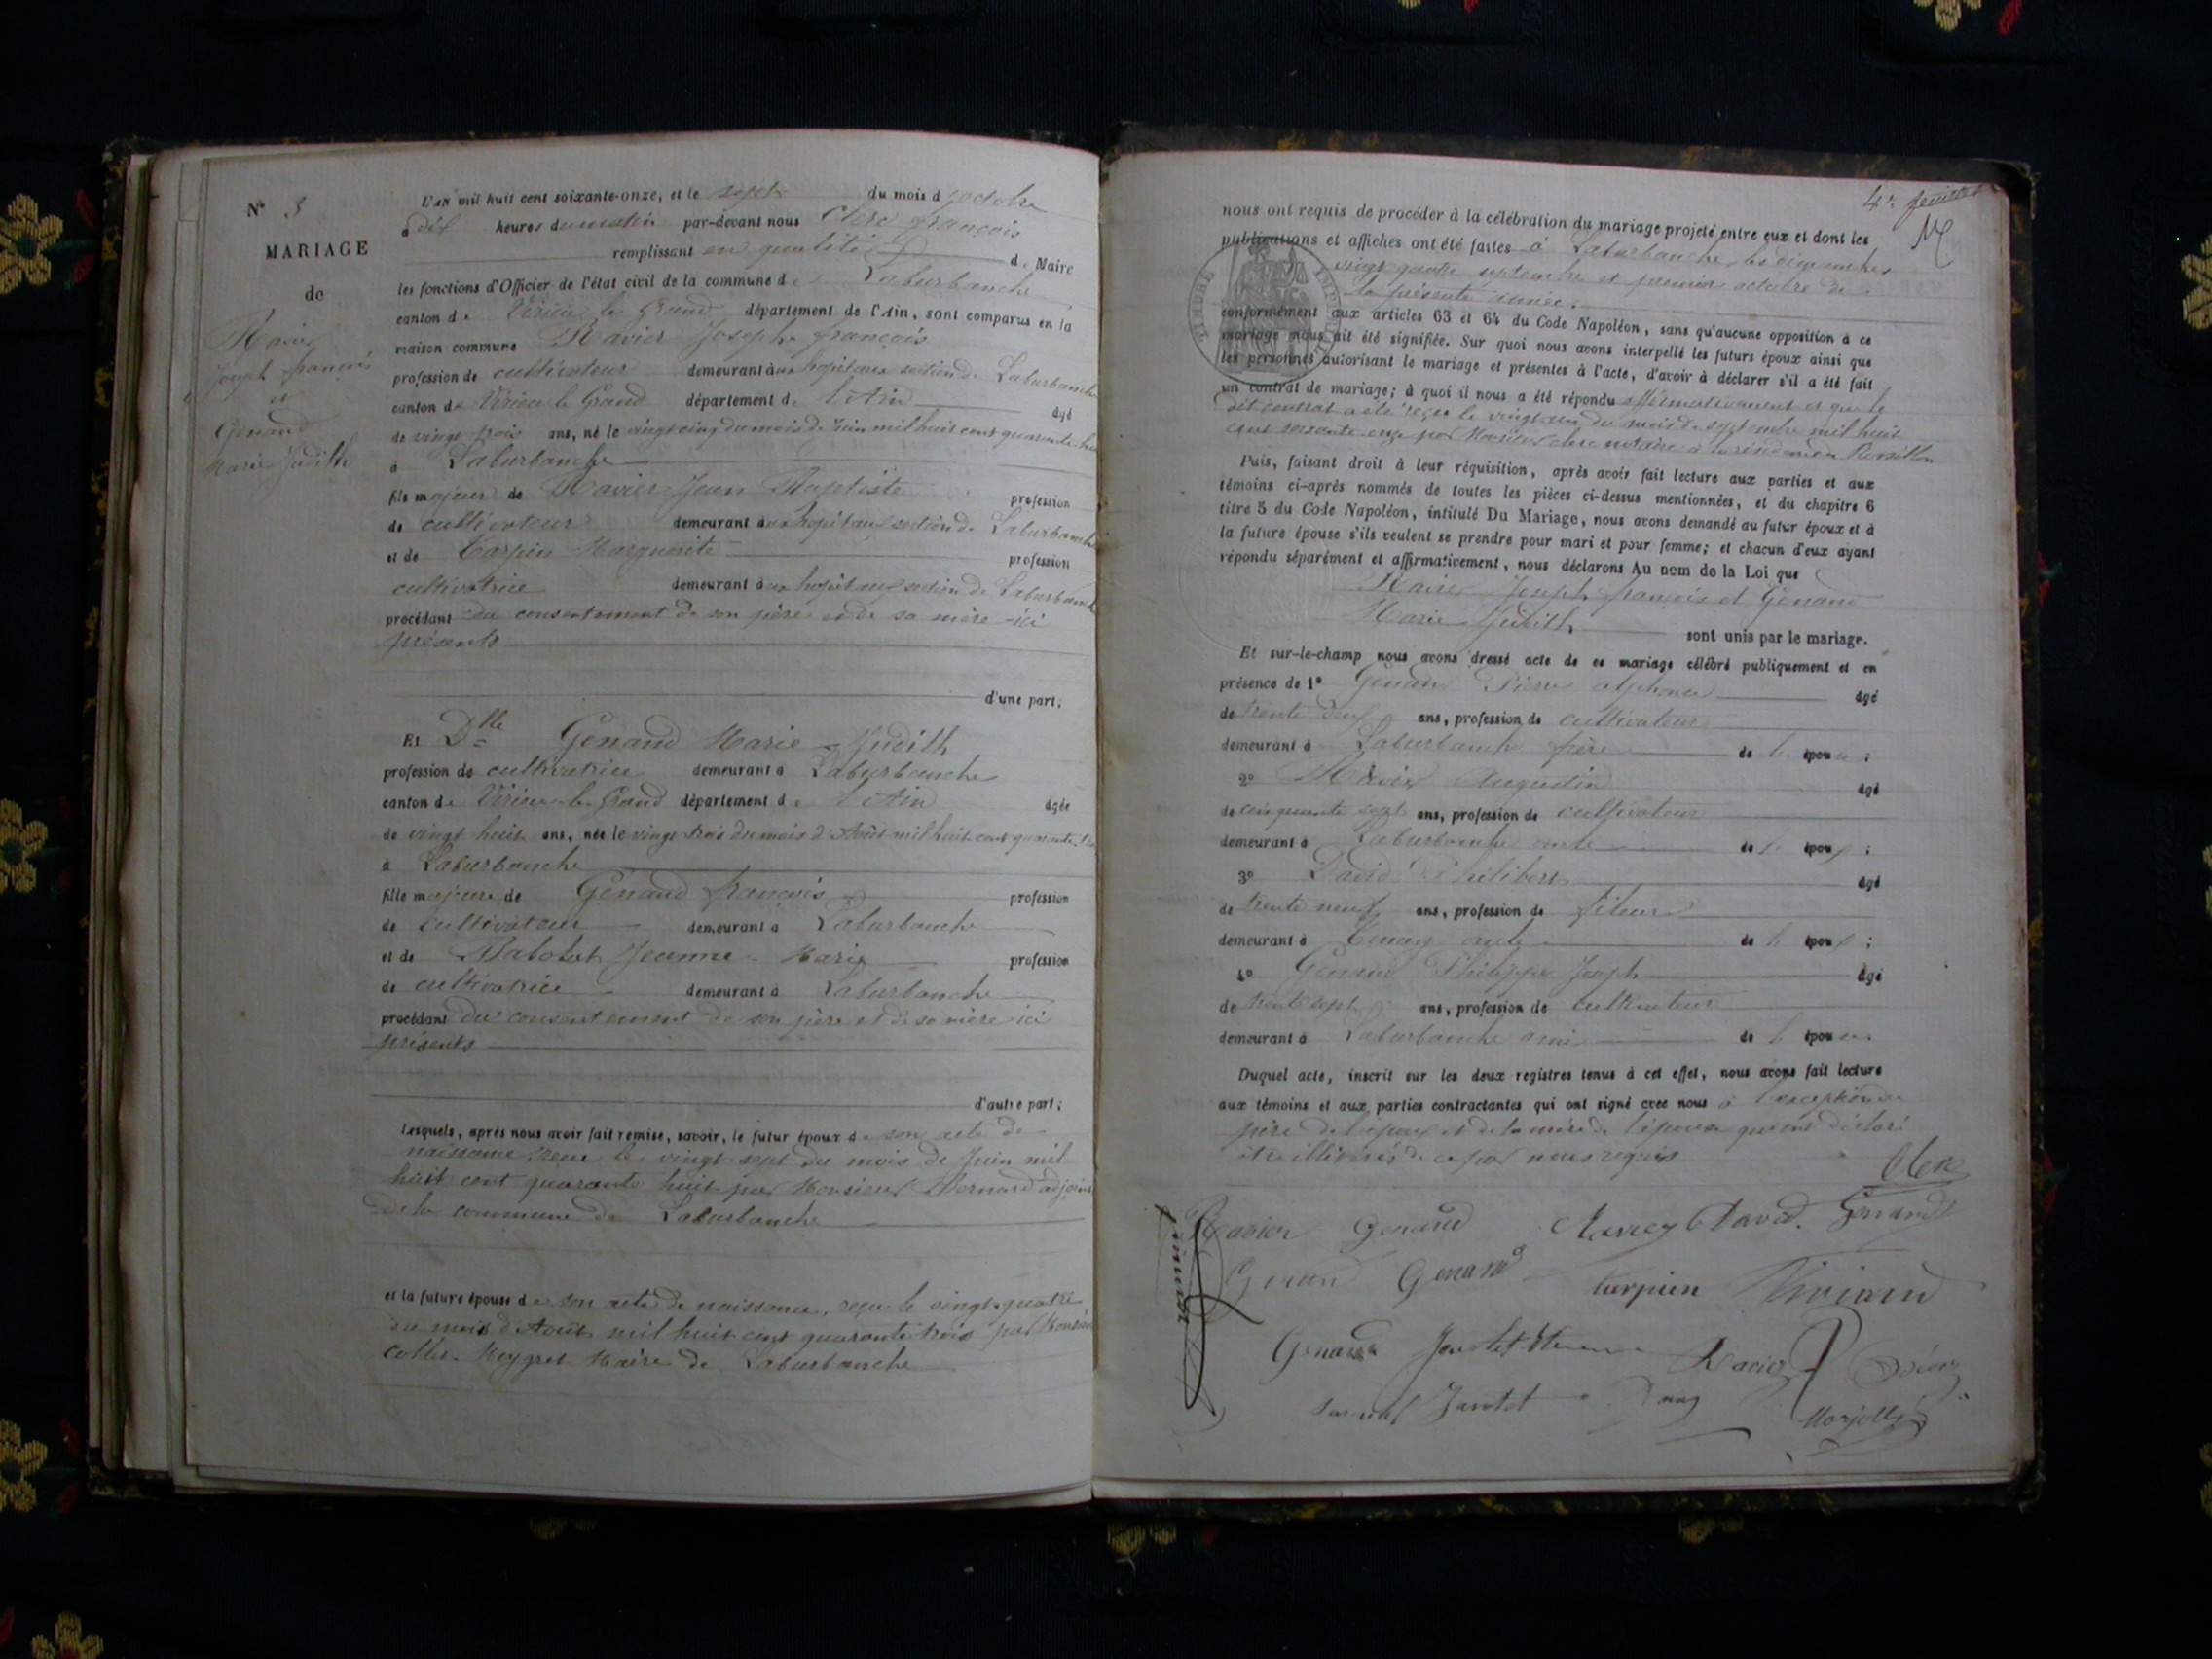 N° 3
MARIAGE
de
Ravier
Joseph françois
et
Genand
Marie Judith
L'an mil huit cent soixante-onze, et le sept du mois d'octobre
à dix heures du matin par-devant nous Clerc françois
remplissant en qualité de Maire
les fonctions d'Officier de l'état civil de la commune de Laburbanche
canton de Virieu le Grand département de l'Ain, sont comparus en la
maison commune Ravier Joseph françois
profession de cultivateur demeurant à aux hopitaux section de Laburbanche
canton de Virieu le Grand département de l'Ain âgé
de vingt trois ans, né le vingt cinq du mois de Juin mil huit cent quarante huit
à Laburbanche
fils majeur de Ravier Jean Baptiste profession
de cultivateur demeurant à aux hopitaux section de Laburbanche
et de Carpin Marguerite profession
cultivatrice demeurant à aux hopitaux section de Laburbanche
procédant du consentement de son père et de sa mère ici
présents
d'une part;
Et Dlle Genand Marie Judith
profession de cultivatrice demeurant à Laburbanche
canton de Virieu le Grand département de l'Ain âgée
de vingt huit ans, née le vingt trois du mois d'Août mil huit cent quarante trois
à Laburbanche
fille majeure de Genand françois profession
de cultivateur demeurant à Laburbanche
et de Jeanne Marie profession
de cultivatrice demeurant à Laburbanche
procédant du consentement de son père et de sa mère ici
présents
d'autre part;
Lesquels, après nous avoir fait remise, savoir, le futur époux de son acte de
naissance, reçu le vingt sept du mois de Juin mil
huit cent quarante huit par Monsieur Bernard adjoint
de la commune de Laburbanche
et la future épouse de son acte de naissance, reçu le vingt quatre
du mois d'Août mil huit cent quarante trois par Monsieur
Collet-Meygret Maire de Laburbanche
4e feuillet
nous ont requis de procéder à la célébration du mariage projeté entre eux et dont les
publications et affiches ont été faites à Laburbanche les dimanches
vingt quatre septembre et premier octobre de
la présente année.
TIMBRE IMPÉRIAL
conformément aux articles 63 et 64 du Code Napoléon, sans qu'aucune opposition à ce
mariage nous ait été signifiée. Sur quoi nous avons interpellé les futurs époux ainsi que
les personnes autorisant le mariage et présentes à l'acte, d'avoir à déclarer s'il a été fait
un contrat de mariage; à quoi il nous a été répondu affirmativement et que le
dit contrat a été reçu le vingt un du mois de septembre mil huit
cent soixante onze par Monsieur Clerc notaire à la résidence de Rossillon
Puis, faisant droit à leur réquisition, après avoir fait lecture aux parties et aux
témoins ci-après nommés de toutes les pièces ci-dessus mentionnées, et du chapitre 6
titre 5 du Code Napoléon, intitulé Du Mariage, nous avons demandé au futur époux et à
la future épouse s'ils veulent se prendre pour mari et pour femme; et chacun d'eux ayant
répondu séparément et affirmativement, nous déclarons Au nom de la Loi que
Ravier Joseph françois et Genand
Marie Judith sont unis par le mariage.
Et sur-le-champ nous avons dressé acte de ce mariage célébré publiquement et en
présence de 1° Genand Pierre alphonse âgé
de trente ans, profession de cultivateur
demeurant à Laburbanche frère de l'épouse;
2° Ravier Augustin âgé
de cinquante sept ans, profession de cultivateur
demeurant à Laburbanche oncle de l'époux;
3° David Philibert âgé
de trente neuf ans, profession de fileur
demeurant à Tenay de l'époux;
4° Genand Philippe Joseph âgé
de trente sept ans, profession de cultivateur
demeurant à Laburbanche ami de l'épouse
Duquel acte, inscrit sur les deux registres tenus à cet effet, nous avons fait lecture
aux témoins et aux parties contractantes qui ont signé avec nous à l'exception du
père de l'époux et de la mère de l'épouse qui ont déclaré
être illitérés de ce par nous requis
Clerc
Ravier Genand David Genand
Genand Genand Carpien Viviand
Genand Ravier
Jarret Marjollet